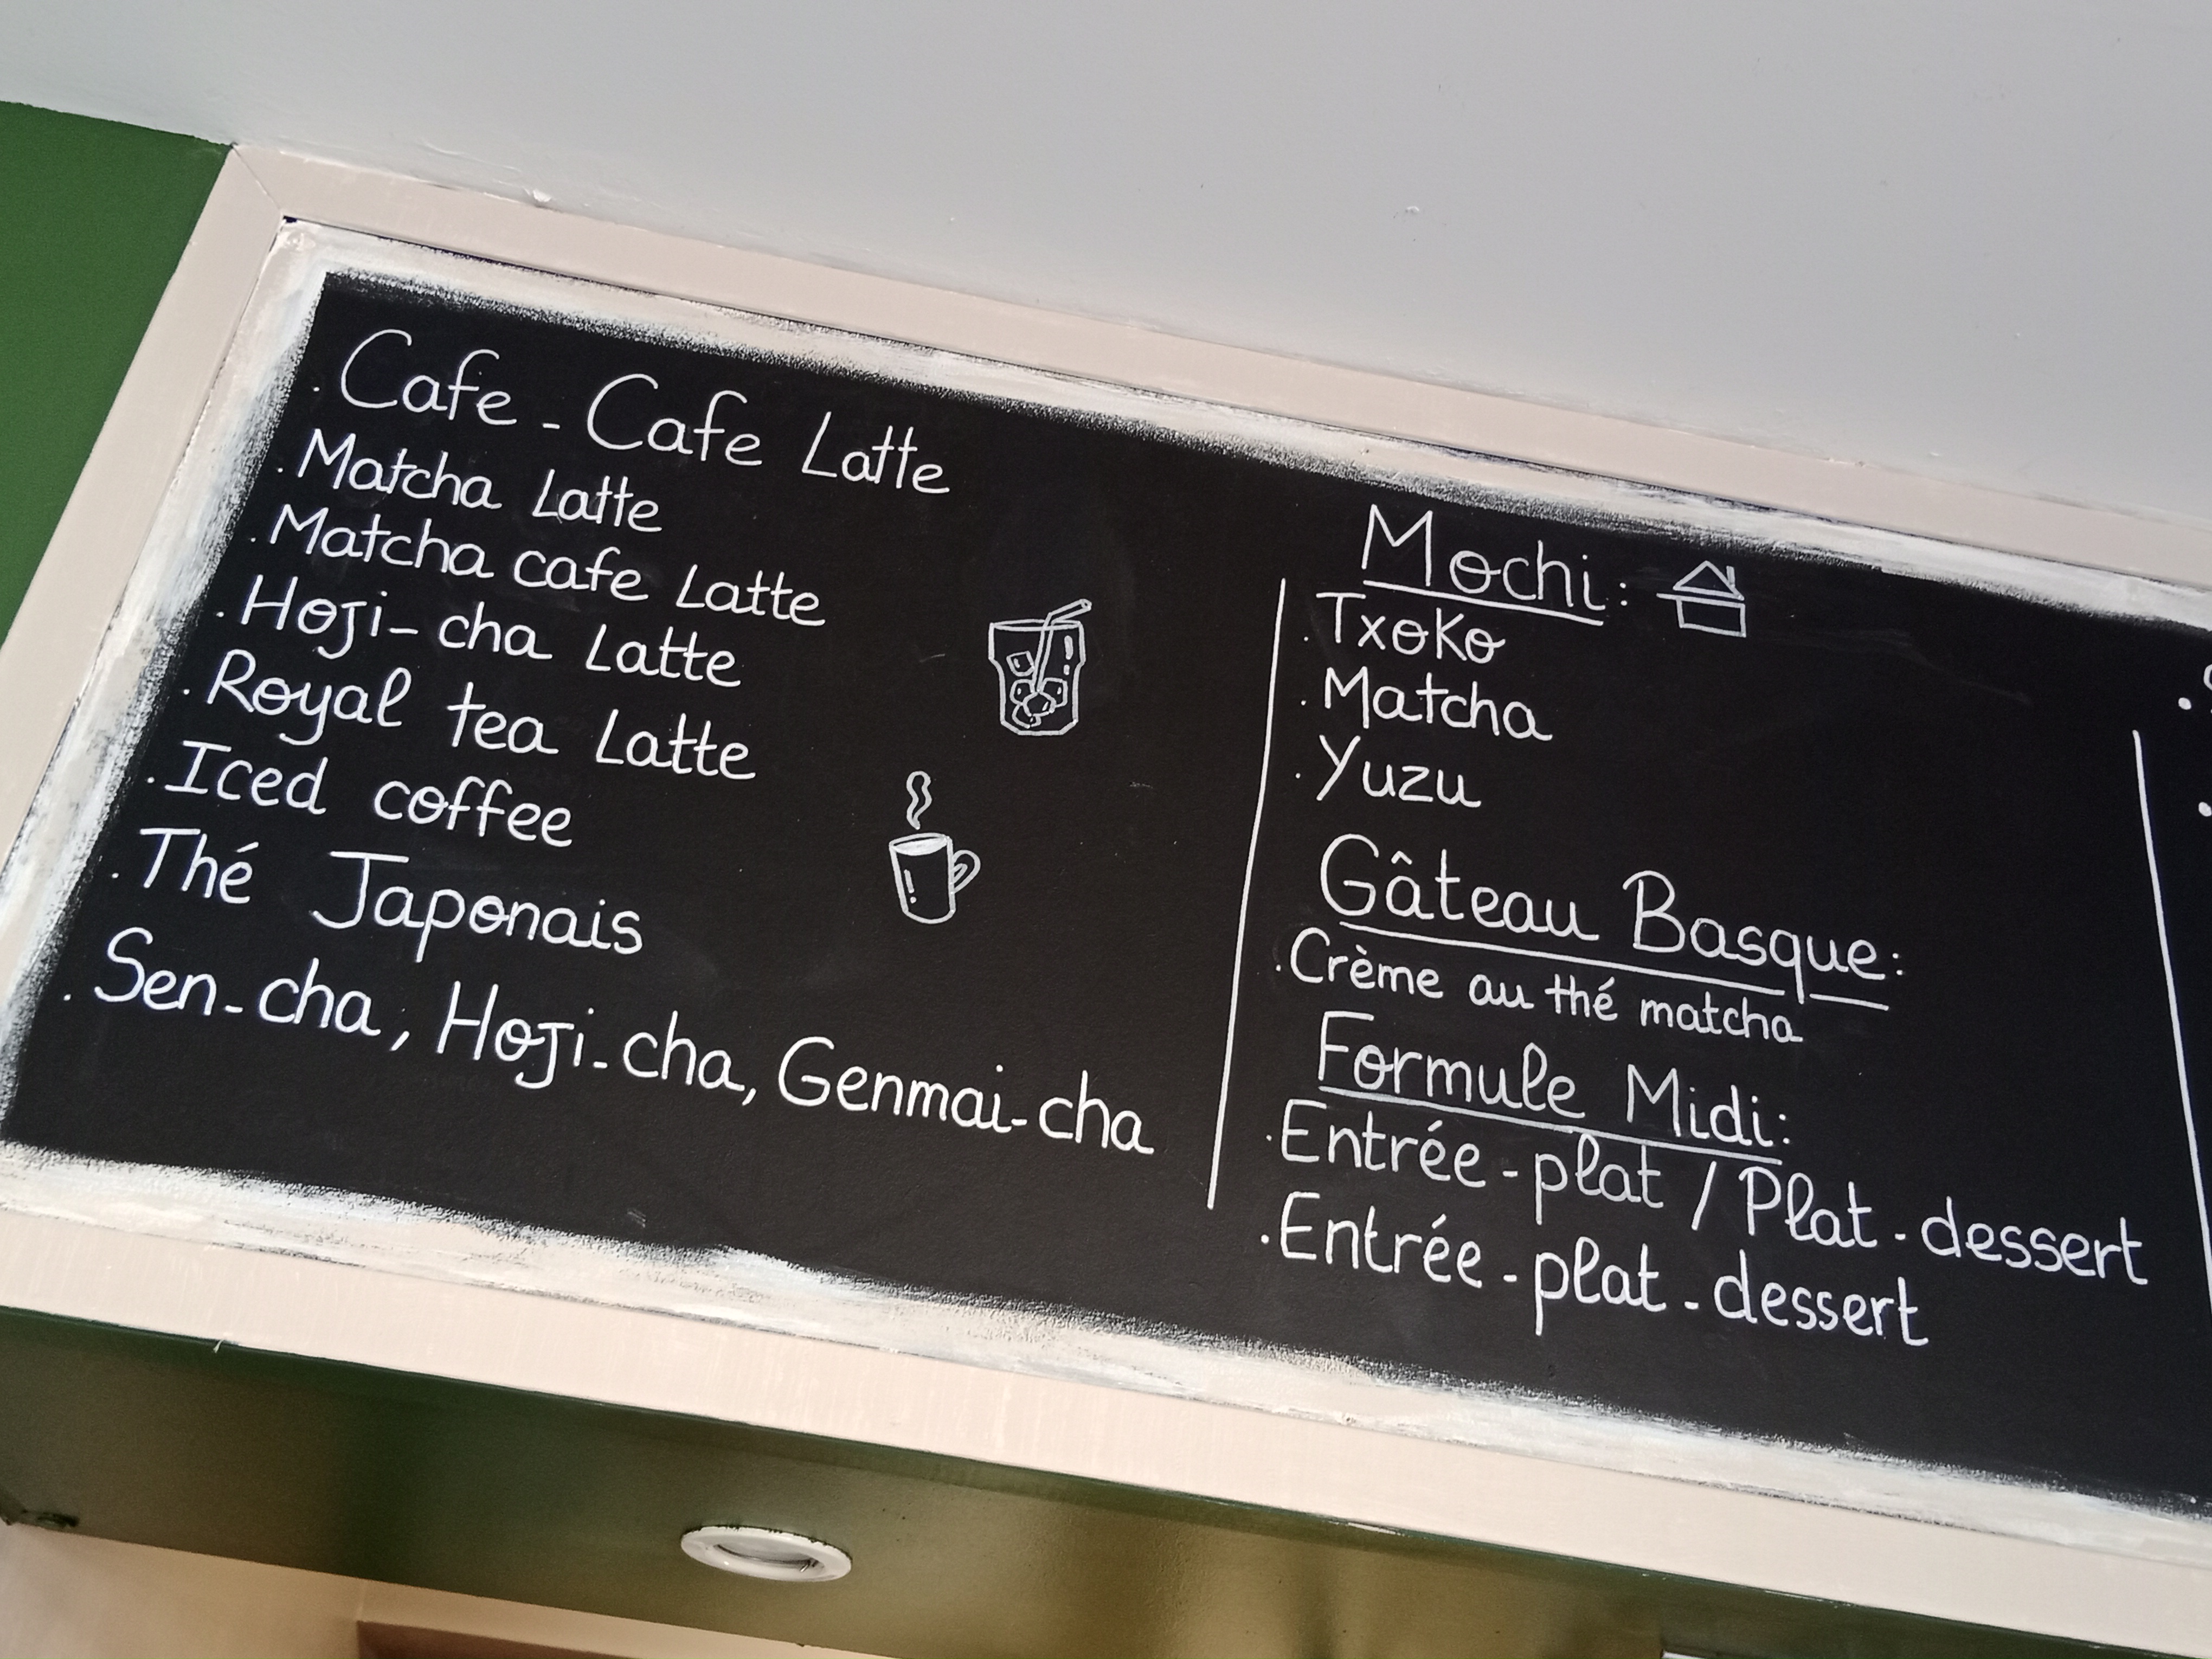 . Cafe - Cafe Latte
. Matcha Latte
. Matcha cafe Latte
. Hoji-cha Latte
. Royal tea Latte
. Iced coffee
. Thé Japonais
. Sen-cha, Hoji-cha, Genmai-cha
Mochi:
. Txoko
. Matcha
. Yuzu
Gâteau Basque:
. Crème au thé matcha
Formule Midi:
. Entrée-plat / Plat-dessert
. Entrée-plat-dessert